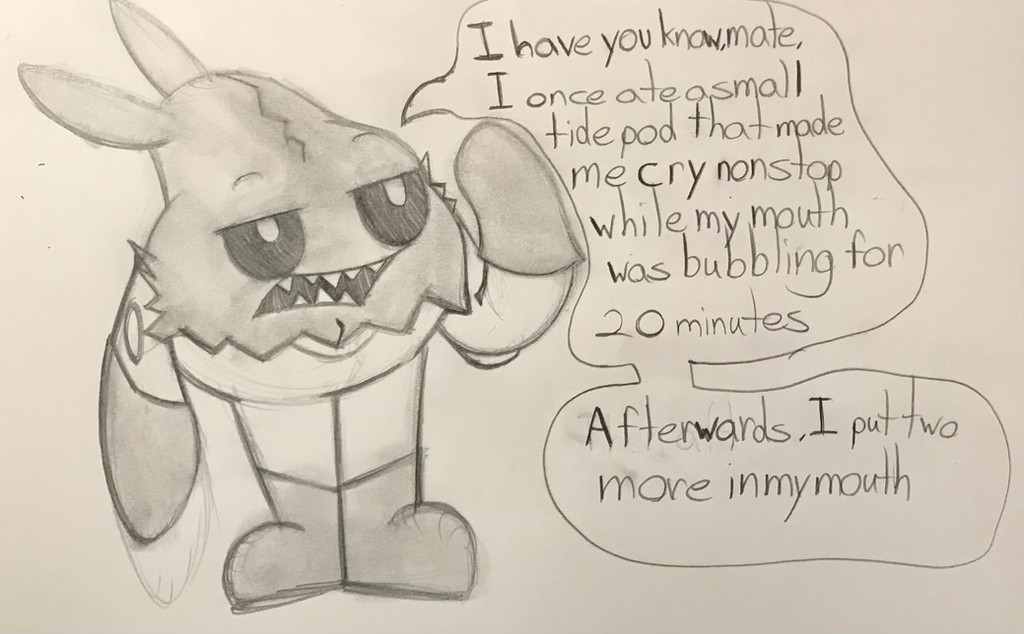 I have you know, mate,
I once ate a small
tide pod that made
me cry nonstop
while my mouth
was bubbling for
20 minutes
Afterwards, I put two
more in my mouth